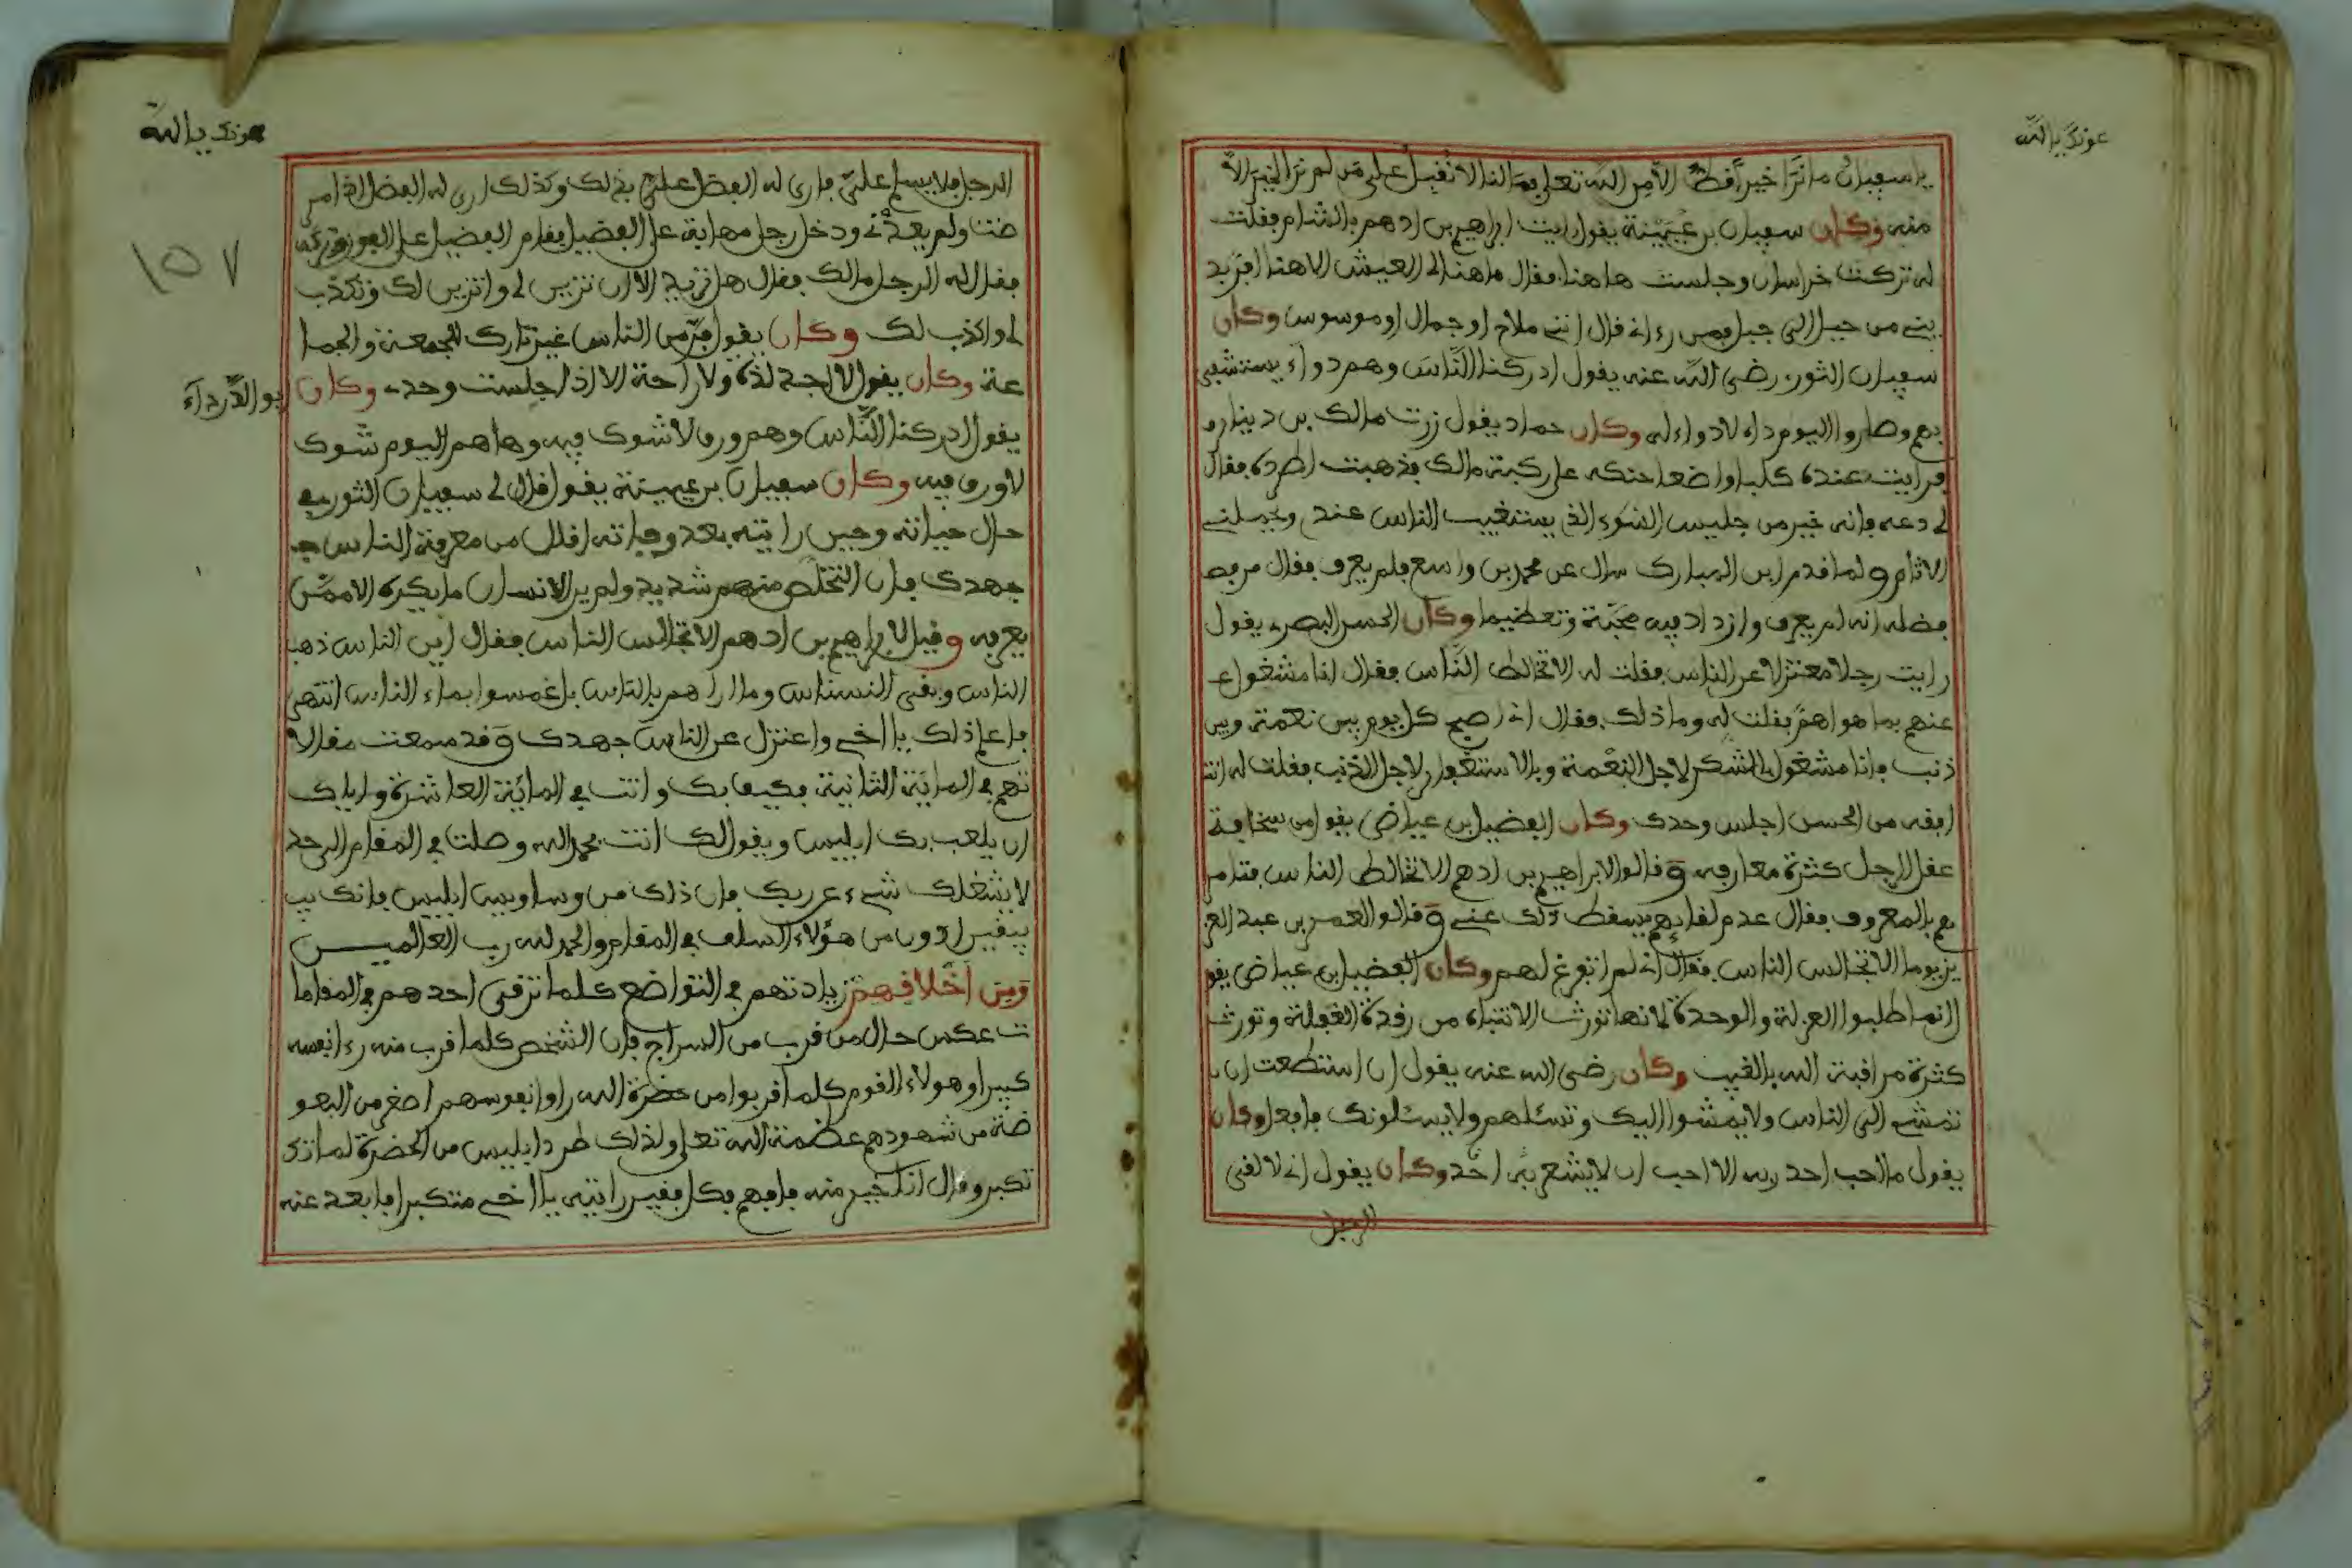 عونك يا الله
يا سفيان ما نرا خيرا قط الا من الله تعلى فما لنا لا نقبل على من لم نرا الخير الا
منه وكان سفيان بن عيينة يقول رايت ابراهيم بن ادهم بالشام فقلت
له تركت خراسان وجلست هاهنا فقال ما هنا لي العيش الا هنا افر بد
يني من جبل الى جبل فمن رءاني قال انني ملاح او جمال او موسوس وكان
سفيان الثوري رضي الله عنه يقول ادركنا الناس وهم دواء يستشفى
بهم وصاروا اليوم داء لا دواء له وكان حماد يقول زرت مالك بن دينار و
فرايت عنده كلبا واضعا حنكه على ركبة مالك فذهبت اطرده فقال
لي دعه فانه خير من جليس السوء الذي يستغيب الناس عندي ويحملني
الاثام ولما قدم ابن المبارك سال عن محمد بن واسع فلم يعرف فقال من فضـ
فضله انه لم يعرف وازداد فيه محبة وتعظيما وكان الحسن البصري يقول
رايت رجلا معتزلا عن الناس فقلت له الا تخالط الناس فقال انا مشغول عـ
عنهم بما هو اهم فقلت له وما ذلك فقال اني اصبح كل يوم بين نعمة وبين
ذنب فانا مشغول بالشكر لاجل النعمة وبالاستغفار لاجل الذنب فقلت له انت
افقه من الحسن اجلس وحدك وكان الفضيل بن عياض يقول من سخافة
عقل الرجل كثرة معارفه وقالوا لابراهيم بن ادهم الا تخالط الناس فتامر
هم بالمعروف فقال عدم لقايهم يسقط ذلك عني وقالوا لعمر بن عبد العز
يز يوما الا تجالس الناس فقال اني لم اتفرغ لهم وكان الفضيل بن عياض يقو
انما طلبوا العزلة والوحدة لانها تورث الانتباه من رقدة الغفلة وتورث
كثرة مراقبة الله بالغيب وكان رضي الله عنه يقول ان استطعت ان
تمشي الى الناس ولا يمشوا اليك وتسئلهم ولا يسئلونك فافعل وكان
يقول ما احب احد ربه الا احب ان لا يشعر به احد وكان يقول اني لا لقى
الرجل
عونك يا الله
١٥٧
الرجل فلا يسلم علي فارى له الفضل علي بذلك وكذلك ارى له الفضل اذا مر
ضت ولم يعدني ودخل رجل مهابة على الفضيل فقام الفضيل على الفور
فقال له الرجل مالك فقال هل تريد الا ان تتزين لي واتزين لك وتكذب
لي واكذب لك وكان يقول فر من الناس غير تارك للجمعة والجما
عة وكان يقول لا اجد لذة ولا راحة الا اذا جلست وحدي وكان ابو الدرداء
يقول ادركنا الناس وهم ورق لا شوك فيه وها هم اليوم شوك
لا ورق فيه وكان سفيان بن عيينة يقول قال لي سفيان الثوري في
حال حياته وحين رايته بعد وفاته اقلل من معرفة الناس جـ
جهدك فان التخلص منهم شديد ولم ير الانسان ما يكره الا ممن
يعرفه وقيل لابراهيم بن ادهم الا تجالس الناس فقال اين الناس ذهب
الناس وبقي النسناس وما اراهم بالناس بل غمسوا بماء الناس انتهى
فاعلم ذلك يا اخي واعتزل عن الناس جهدك وقد سمعت مقالا
تهم في المائة الثانية فكيف بك وانت في المائة العاشرة واياك
ان يلعب بك ابليس ويقول لك انت بحمد الله وصلت في المقام الى حد
لا يشغلك شيء عن ربك فان ذلك من وساويس ابليس فانك بيـ
بيقين ادون من هؤلاء السلف في المقام والحمد لله رب العالميـــن
ومن اخلاقهم زيادتهم في التواضع كلما ترقى احدهم في المقاما
ت عكس حال من قرب من السراج فان الشخص كلما قرب منه رءا نفسه
كبيرا وهولاء القوم كلما قربوا من حضرة الله راوا نفوسهم اصغر من البعو
ضة من شهودهم عظمة الله تعلى ولذلك طرد ابليس من الحضرة لما تك
تكبر وقال انا خير منه فافهم فكل فقير رايته يا اخي متكبرا فابعد عنه